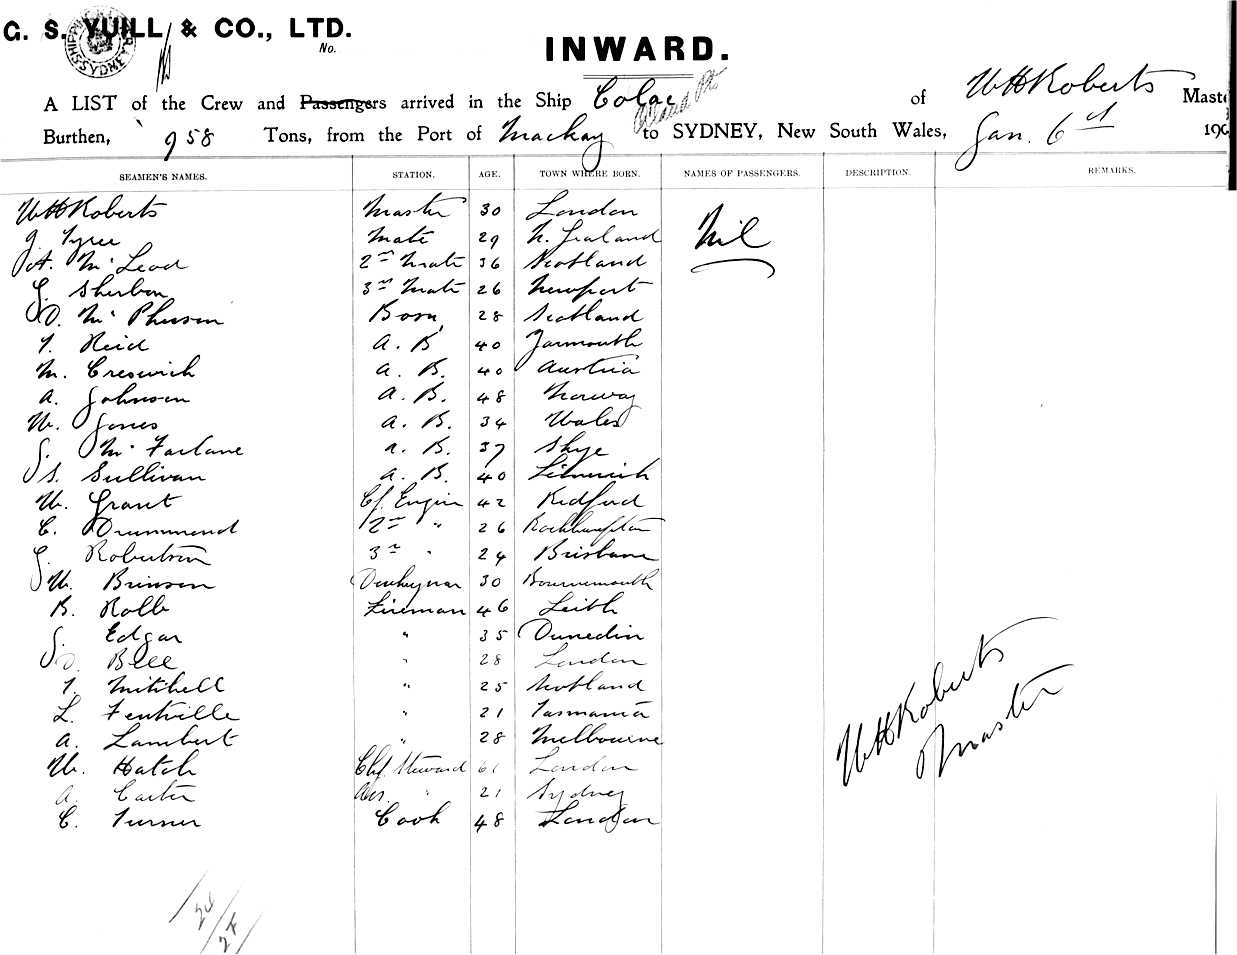 G. S. YUILL & CO., LTD.
SHIPPING SYDNEY
No.
INWARD.
A LIST of the Crew and Passengers arrived in the Ship Colac of W H Roberts Maste
Burthen, 958 Tons, from the Port of Mackay to SYDNEY, New South Wales, Jan. 6th 190
SEAMEN'S NAMES. STATION. AGE. TOWN WHERE BORN. NAMES OF PASSENGERS. DESCRIPTION. REMARKS.
W H Roberts Master 30 London Nil
J. Tyree Mate 29 N. Zealand
A. McLeod 2nd Mate 36 Scotland
G. Sherbon 3rd Mate 26 Newport
D. McPherson Bosn 28 Scotland
T. Reid A. B 40 Yarmouth
M. Creswich A. B. 40 Austria
A. Johnson A. B. 48 Norway
W. Jones A. B. 34 Wales
J. McFarlane A. B. 37 Skye
S. Sullivan A. B. 40 Limerick
W. Grant Cf. Engin 42 Redford
C. Drummond 2nd " 26 Rockhampton
J. Robertson 3rd " 24 Brisbane
W. Brinson Donkeyman 30 Bournemouth
B. Rolls Fireman 46 Leith
J. Edgar " 35 Dunedin
D. Bell " 28 London
T. Mitchell " 25 Scotland
L. Fentville " 21 Tasmania
A. Lambert " 28 Melbourne
W. Hatch Chf. Steward 61 London
A. Carter Ass. " 21 Sydney
C. Turner Cook 48 London
W H Roberts
Master
24/24